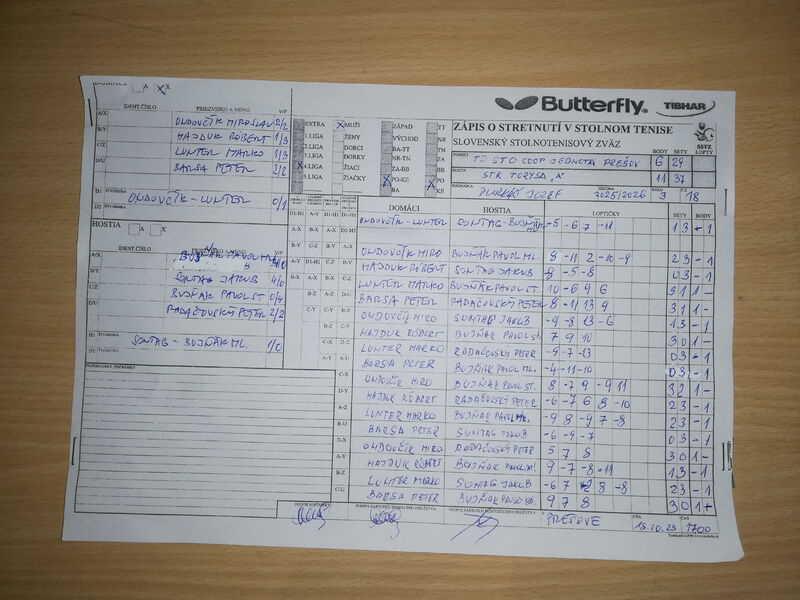 DOMÁCI A X X
IDENT.ČÍSLO PRIEZVISKO A MENO V/P
A/X ONDOVČÍK MIROSLAV 2/2
B/Y HAJDUK RÓBERT 1/3
C/Z LUNTER MARKO 1/3
D/U BARSA PETER 2/2
D1 ŠTVORHRA ONDOVČÍK - LUNTER 0/1
D2 ŠTVORHRA
HOSTIA A X
IDENT.ČÍSLO PRIEZVISKO A MENO V/P
A/X BUJŇÁK PAVOL ML.
B/Y SONTAG JAKUB 4/0
C/Z BUJŇÁK PAVOL ST. 0/4
D/U RADAČOVSKÝ PETER 2/2
H1 ŠTVORHRA SONTAG - BUJŇÁK ML. 1/0
H2 ŠTVORHRA
PRIPOMIENKY, PODPISY
Butterfly TIBHAR
EXTRA X MUŽI ZÁPAD TT
1.LIGA ŽENY VÝCHOD NR
2.LIGA DORCI BA-TT TN
3.LIGA DORKY NR-TN ZA
X 4.LIGA ŽIACI ZA-BB BB
5.LIGA ŽIAČKY X PO-KE PO
BA X KE
ZÁPIS O STRETNUTÍ V STOLNOM TENISE
SLOVENSKÝ STOLNOTENISOVÝ ZVÄZ
SSTZ
BODY SETY LOPTY
DOMÁCI TJ STO COOP JEDNOTA PREŠOV 6 29
HOSTIA STK TORYSA "A" 11 37
ROZHODCA PURKÁČ JOZEF 2025/2026 3 18
DOMÁCI HOSTIA LOPTIČKY SETY BODY
ONDOVČÍK - LUNTER SONTAG - BUJŇÁK ML -5 -6 7 -11 1 3 - 1
ONDOVČÍK MIRO BUJŇÁK PAVOL ML. 8 -11 2 -10 -9 2 3 - 1
HAJDUK RÓBERT SONTAG JAKUB -8 -5 -8 0 3 - 1
LUNTER MARKO BUJŇÁK PAVOL ST. 10 -6 9 6 3 1 1 -
BARSA PETER RADAČOVSKÝ PETER 8 -11 13 9 3 1 1 -
ONDOVČÍK MIRO SONTAG JAKUB -9 -8 13 -6 1 3 - 1
HAJDUK RÓBERT BUJŇÁK PAVOL ST. 7 9 10 3 0 1 -
LUNTER MARKO RADAČOVSKÝ PETER -9 -7 -13 0 3 - 1
BARSA PETER BUJŇÁK PAVOL ML. -4 -11 -10 0 3 - 1
ONDOVČÍK MIRO BUJŇÁK PAVOL ST. 8 -7 9 -9 11 3 2 1 -
HAJDUK RÓBERT RADAČOVSKÝ PETER -6 -7 6 8 -10 2 3 - 1
LUNTER MARKO BUJŇÁK PAVOL ML. -9 8 -9 7 -8 2 3 - 1
BARSA PETER SONTAG JAKUB -6 -9 -7 0 3 - 1
ONDOVČÍK MIRO RADAČOVSKÝ PETER 5 7 8 3 0 1 -
HAJDUK RÓBERT BUJŇÁK PAVOL ML. 9 -7 -8 -11 1 3 - 1
LUNTER MARKO SONTAG JAKUB -6 7 8 -8 2 3 - 1
BARSA PETER BUJŇÁK PAVOL ST. 9 7 8 3 0 1 -
PODPIS ROZHODCU PODPIS ZÁSTUPCU DOMÁCEHO DRUŽSTVA PODPIS ZÁSTUPCU HOSŤUJÚCEHO DRUŽSTVA V PREŠOVE DŇA 15.10.25 ČAS 17.00